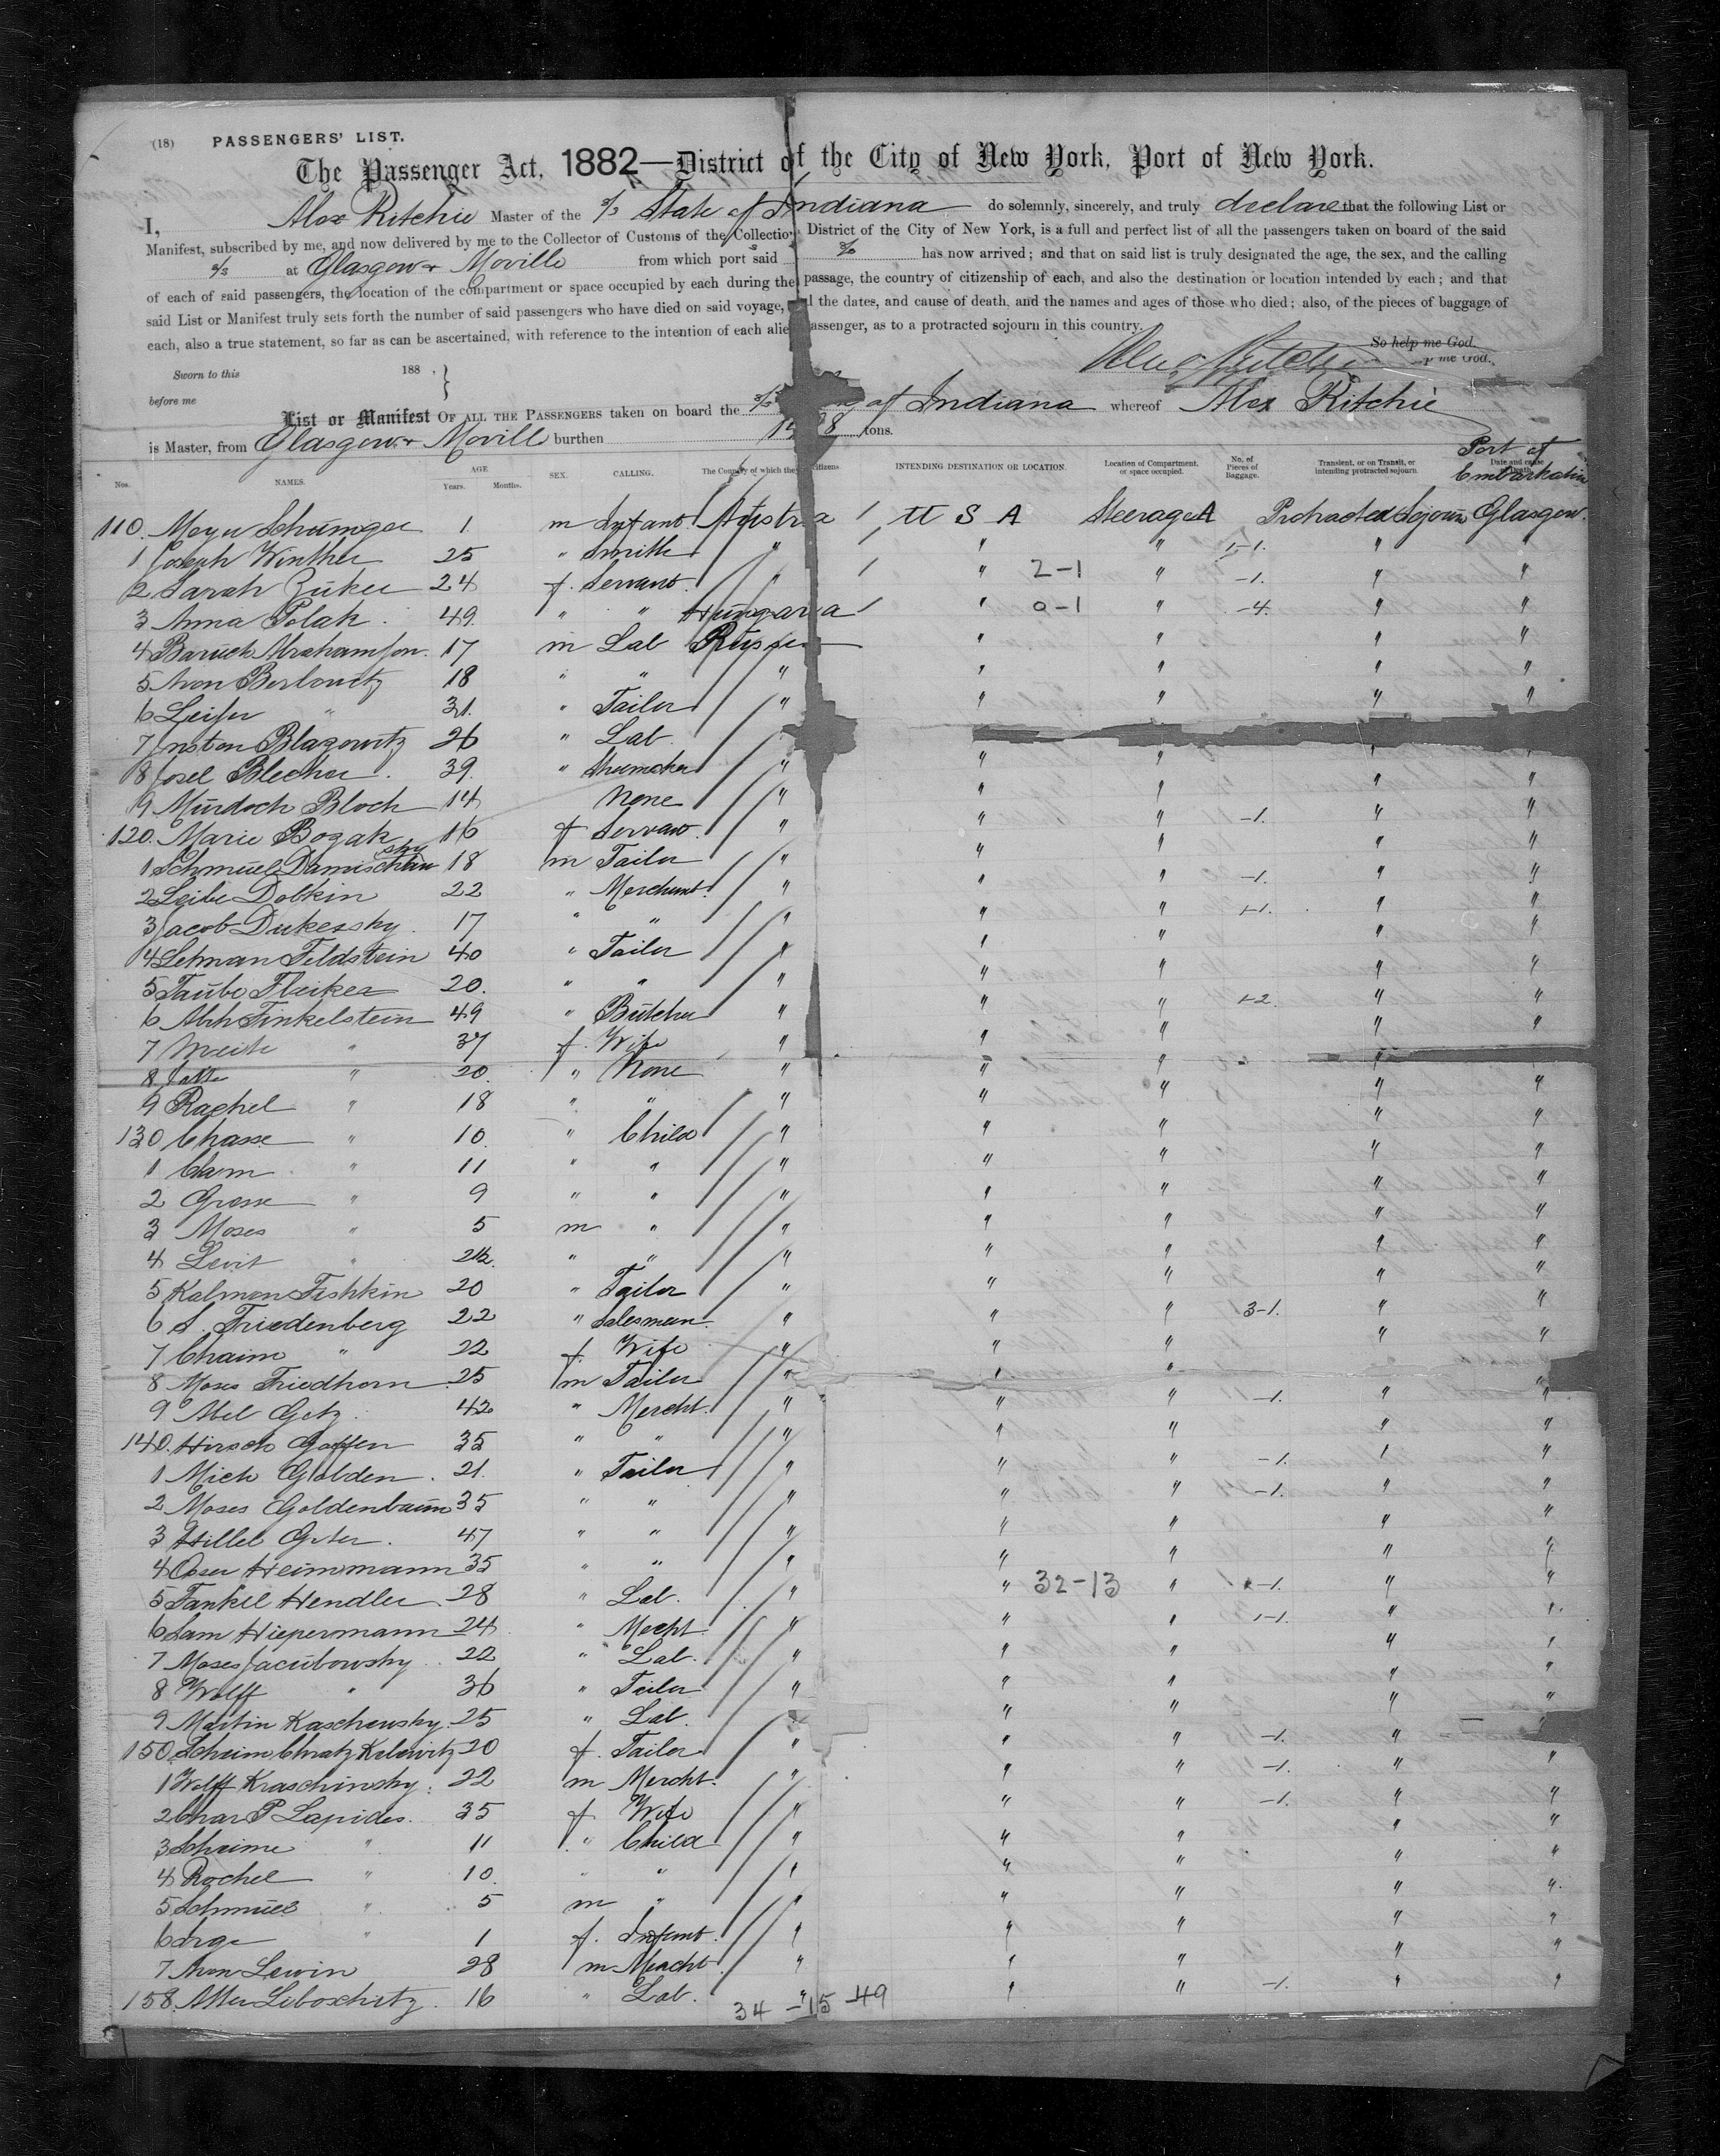 (18) PASSENGERS' LIST.
The Passenger Act, 1882—District of the City of New York, Port of New York.
I, Alex Ritchie Master of the S/S State of Indiana do solemnly, sincerely, and truly declare that the following List or
Manifest, subscribed by me, and now delivered by me to the Collector of Customs of the Collection District of the City of New York, is a full and perfect list of all the passengers taken on board of the said
S/S at Glasgow & Moville from which port said S/S has now arrived; and that on said list is truly designated the age, the sex, and the calling
of each of said passengers, the location of the compartment or space occupied by each during the passage, the country of citizenship of each, and also the destination or location intended by each; and that
said List or Manifest truly sets forth the number of said passengers who have died on said voyage, the dates, and cause of death, and the names and ages of those who died; also, of the pieces of baggage of
each, also a true statement, so far as can be ascertained, with reference to the intention of each alien passenger, as to a protracted sojourn in this country.
So help me God.
Alex Ritchie
Sworn to this 188 ,
before me
List or Manifest OF ALL THE PASSENGERS taken on board the S/S of Indiana whereof Alex Ritchie
is Master, from Glasgow & Movill burthen tons.
Port of Embarkation
Nos. NAMES. AGE Years. Months. SEX. CALLING. The Country of which they citizens. INTENDING DESTINATION OR LOCATION. Location of Compartment, or space occupied. No. of Pieces of Baggage. Transient, or on Transit, or intending protracted sojourn. Date and cause
110. Meyn 1 m Infant Austria U S A Steerage A Protracted Sojourn Glasgow.
1 Joseph Winther 25 " Smith " " " 1-1. " "
2 Sarah Zuker 24 f. Servant " " 2-1 " -1. " "
3 Anna Polak 49. " " Hungaria " 0-1 " -4. " "
4 Baruch Abrahamson. 17 m Lab Russia " " "
5 Aron Berlowitz 18 " " " " " " "
6 Leiser " 31. " Tailor " " " " "
7 Blazowitz 26 " Lab.
8 Josel Blecher. 39. " Shumaker " " " " "
9 Murdoch Bloch 14 None " " " " "
120. Marie Bogak 16 f Servant. " " " -1. " "
1 Schmuel 18 m Tailor " " " " "
2 Leibe Dobkin 22 " Merchant. " " " -1. " "
3 Jacob Dukessky. 17 " " " " " 1-1. " "
4 Lehman Feldstein 40 " Tailor " " " " "
5 Taube Fleiker 20. " " " " " " "
6 Abh Finkelstein 49 " Butcher " " " 1-2. " "
7 " 37 f. Wife " " " " "
8 " 20. " None " " " "
9 Rachel " 18 " " " " " " "
130 Chasse " 10. " Child " " " " "
1 " 11 " " " " " " "
2 Grosse " 9 " " " " " " "
3 Moses " 5 m " " " " " "
4 Levit " " " " " " " "
5 Kalmon Fishkin 20 " Tailor " " " " "
6 S. Friedenberg 22 " Salesman. " " " 3-1. " "
7 Chaim " 22 f. Wife " " " " "
8 Moses Friedhorn 25 m Tailor " " " "
9 Abel Getz. 42 " Mercht. " " " -1. " "
140. Hirsch Goffen 35 " " " " " " "
1 Mich Golden. 21. " Tailor " " " -1. " "
2 Moses Goldenbaum 35 " " " " " -1. " "
3 Hillel 47 " " " " " " "
4 Heimmann 35 " " " " " " "
5 Jankel Hendler 28 " Lab. " " 32-13 " -1. " "
6 Sam Hiepermann 24 " Mecht " " " 1-1. " "
7 Moses Jacubowsky. 22 " Lab. " " " " "
8 Wolff " 36 " Tailor " " " " "
9 Martin Kaschewsky. 25 " Lab. " " " " "
150 20 f. Tailor " " " -1. "
1 Wolff Kraschinsky. 22 m Mercht. " " " -1. " "
2 P Lapides. 35 f Wife " " " -1. " "
3 Scheime " 11 " Child " " " " "
4 Rochel " 10. " " " " " " "
5 Schmuel " 5 m " " " " " "
6 " 1 f. Infant. " " " " "
7 Aron Lewin 28 m Mercht. " " " " "
158 Atter 16 " Lab. " " " -1. " "
34 - 15 - 49